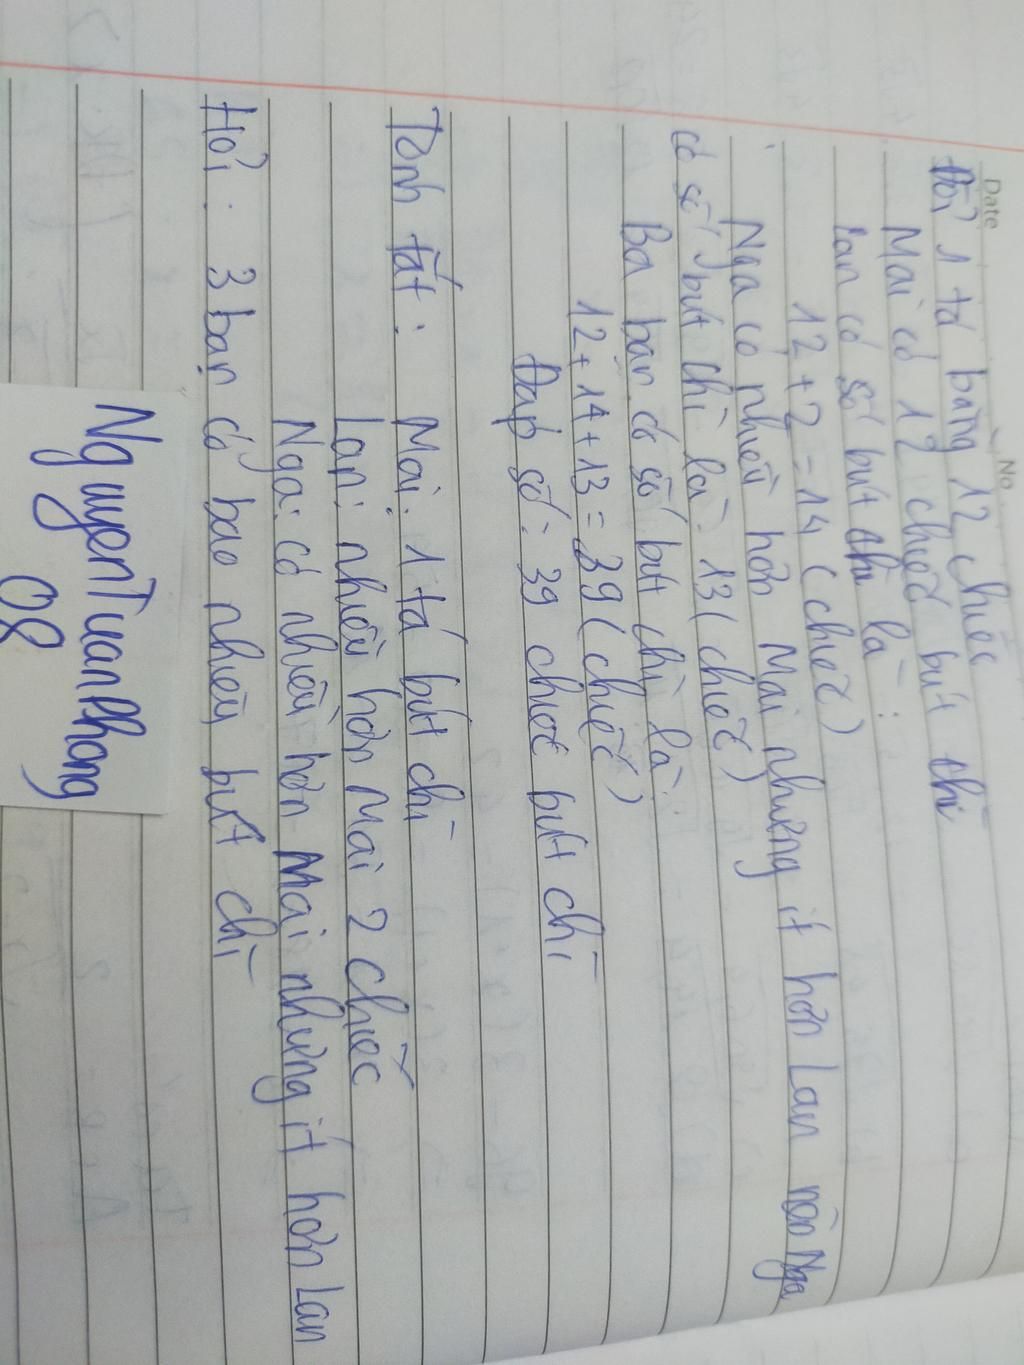 Date No.
Đổi 1 tá bằng 12 chiếc
Mai có 12 chiếc bút chì
Lan có số bút chì là :
12 + 2 = 14 ( chiếc )
Nga có nhiều hơn Mai nhưng ít hơn Lan nên Nga
có số bút chì là : 13 ( chiếc )
Ba bạn có số bút chì là :
12 + 14 + 13 = 39 ( chiếc )
Đáp số : 39 chiếc bút chì
Tóm tắt : Mai : 1 tá bút chì
Lan : nhiều hơn Mai 2 chiếc
Nga : có nhiều hơn Mai nhưng ít hơn Lan
Hỏi : 3 bạn có bao nhiêu bút chì
NguyenTuanPhong
08